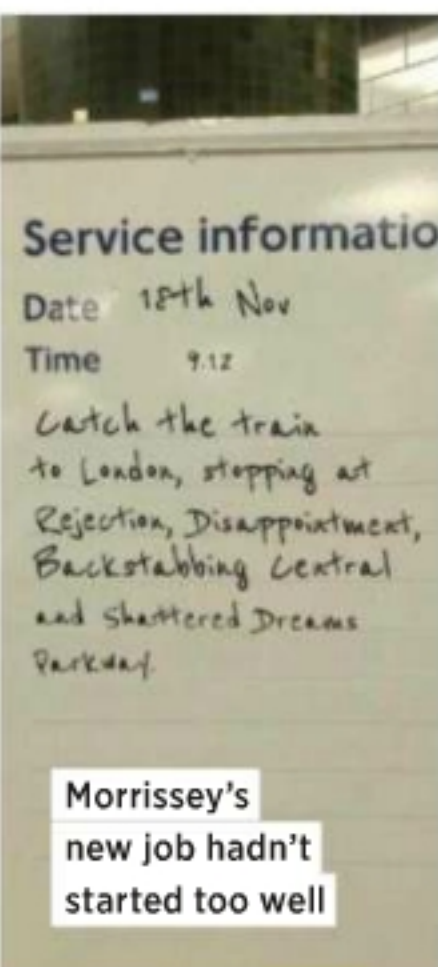 Service informatio
Date 18th Nov
Time 9.12
Catch the train
to London, stopping at
Rejection, Disappointment,
Backstabbing Central
and Shattered Dreams
Parkway.
Morrissey's
new job hadn't
started too well